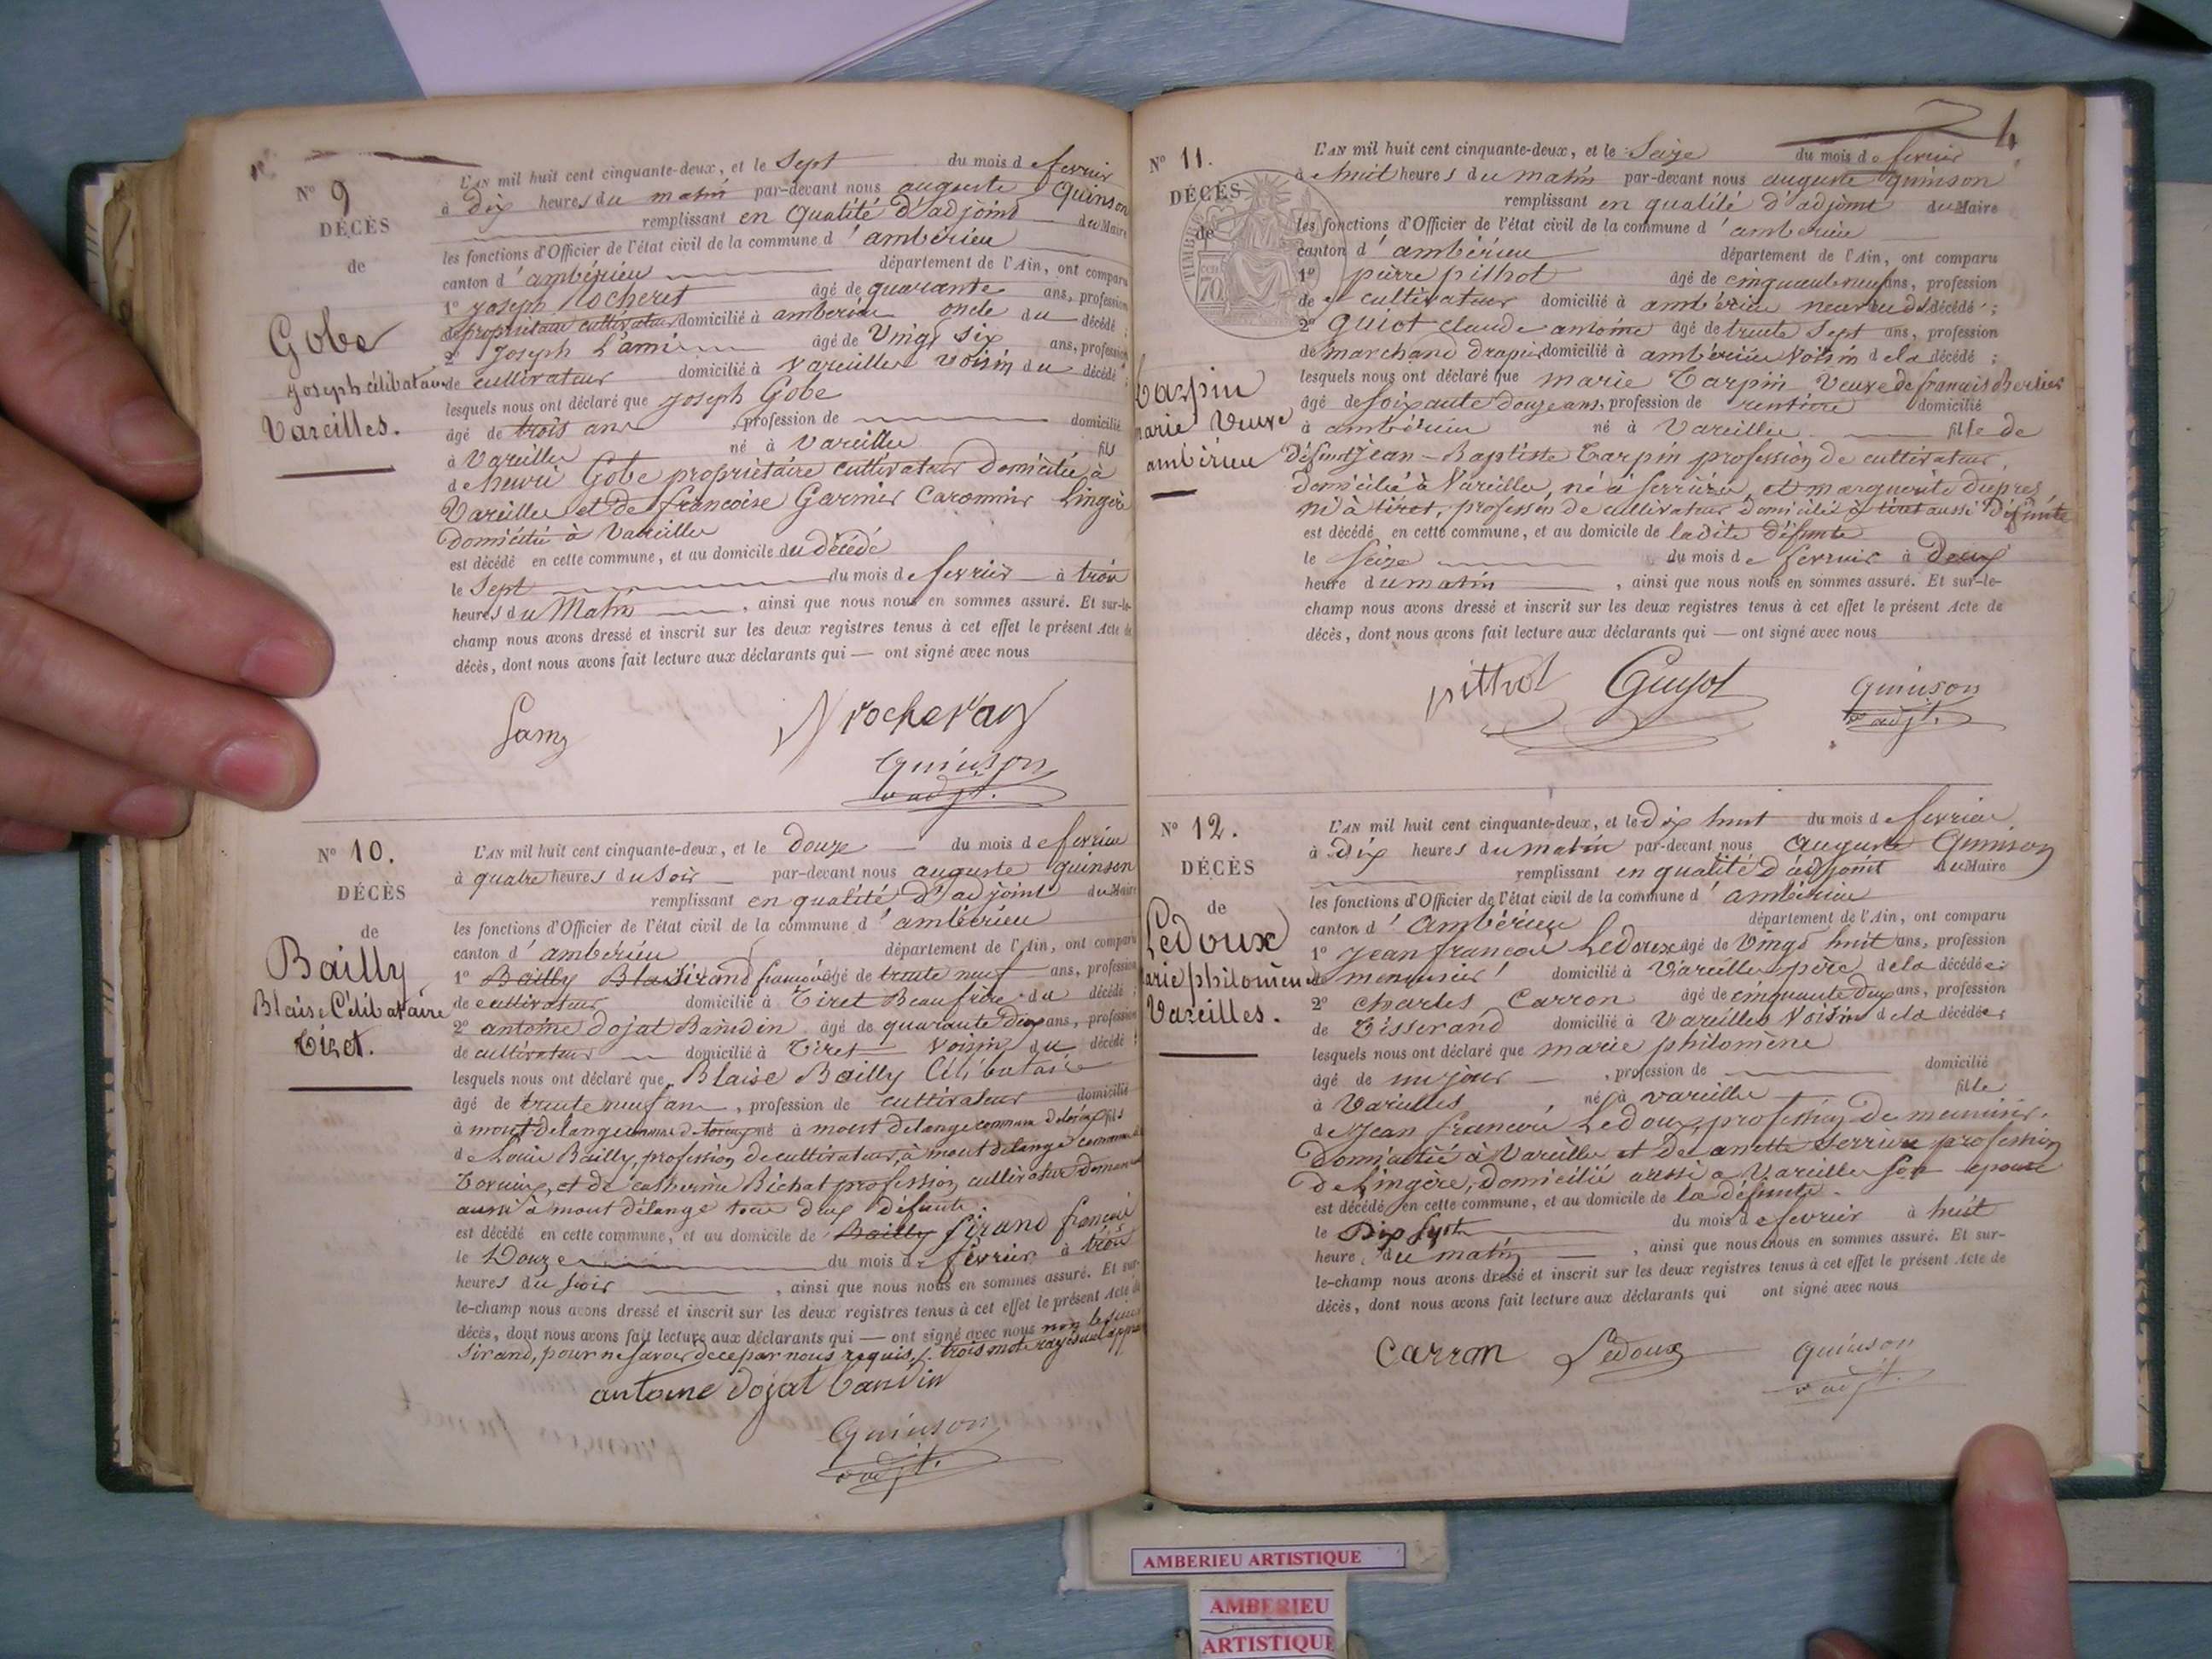 N° 9
DÉCÈS
de
Gobe
joseph célibataire
Vareilles.
L'AN mil huit cent cinquante-deux, et le Sept du mois de fevrier
à dix heures du matin par-devant nous auguste Quinson
remplissant en qualité d'adjoint du Maire
les fonctions d'Officier de l'état civil de la commune d'ambérieu
canton d'ambérieu département de l'Ain, ont comparu
1° joseph Rocheret âgé de quarante ans, profession
de propriétaire cultivateur domicilié à ambérieu oncle du décédé ;
2° Joseph L'ami âgé de Vingt six ans, profession
de cultivateur domicilié à Vareilles voisin du décédé ;
lesquels nous ont déclaré que joseph Gobe
âgé de trois ans , profession de domicilié
à Vareilles né à Vareilles fils
de henri Gobe propriétaire cultivateur domicilié à
Vareilles et de francoise Garnier Lingère
domicilié à Vareilles
est décédé en cette commune, et au domicile du décédé
le Sept du mois de fevrier à trois
heures du Matin , ainsi que nous nous en sommes assuré. Et sur-le-
champ nous avons dressé et inscrit sur les deux registres tenus à cet effet le présent Acte de
décès, dont nous avons fait lecture aux déclarants qui — ont signé avec nous
Lamy
Quinson
adjt.
N° 10.
DÉCÈS
de
Bailly
Blaise Célibataire
Tiret.
L'AN mil huit cent cinquante-deux, et le douze du mois de fevrier
à quatre heures du soir par-devant nous auguste quinson
remplissant en qualité d'adjoint du Maire
les fonctions d'Officier de l'état civil de la commune d'ambérieu
canton d'ambérieu département de l'Ain, ont comparu
1° Bailly Blaise Sirand françois âgé de trente neuf ans, profession
de cultivateur domicilié à Tiret Beaufrère du décédé ;
2° antoine dojat Baudin âgé de quarante deux ans, profession
de cultivateur domicilié à Tiret voisin du décédé ;
lesquels nous ont déclaré que Blaise Bailly Célibataire
âgé de trente neuf ans , profession de cultivateur domicilié
à mont delange commune de torcieux né à mont delange commune de torcieux fils
de Louis Bailly, profession de cultivateur, à mont delange commune de
Torcieux, et de catherine Bichat profession cultivateur demeurant
aussi à mont délange tous deux défunts.
est décédé en cette commune, et au domicile de Bailly Sirand françois
le Douze du mois de fevrier à trois
heures du soir , ainsi que nous nous en sommes assuré. Et sur-
le-champ nous avons dressé et inscrit sur les deux registres tenus à cet effet le présent Acte de
décès, dont nous avons fait lecture aux déclarants qui — ont signé avec nous non le sieur
Sirand, pour ne savoir de ce par nous requis, /. trois mots rayés
antoine dojat baudin
Quinson
adjt.
4
N° 11.
DÉCÈS
de
TIMBRE
70
Tarpin
marie Veuve
ambérieu
L'AN mil huit cent cinquante-deux, et le Seize du mois de fevrier
à huit heures du matin par-devant nous auguste quinson
remplissant en qualité d'adjoint du Maire
les fonctions d'Officier de l'état civil de la commune d'ambérieu
canton d'ambérieu département de l'Ain, ont comparu
1° pierre pithot âgé de cinquante neuf ans, profession
de cultivateur domicilié à ambérieu neveu de la décédé ;
2° guiot claude antoine âgé de trente sept ans, profession
de marchand drapier domicilié à ambérieu Voisin de la décédé ;
lesquels nous ont déclaré que marie Tarpin Veuve de francois
âgé de soixante douze ans, profession de rentière domicilié
à ambérieu né à Vareilles fille de
défunt Jean-Baptiste Tarpin profession de cultivateur,
domicilié à Vareilles, né à et marguerite dupres
né à tiret, profession de cultivateur domicilié à tiret aussi défunte
est décédé en cette commune, et au domicile de ladite défunte
le Seize du mois de fevrier à Deux
heure du matin , ainsi que nous nous en sommes assuré. Et sur-le-
champ nous avons dressé et inscrit sur les deux registres tenus à cet effet le présent Acte de
décès, dont nous avons fait lecture aux déclarants qui — ont signé avec nous
pithot Guyot Quinson
adjt.
N° 12.
DÉCÈS
de
Ledoux
marie philomène
Vareilles.
L'AN mil huit cent cinquante-deux, et le dix huit du mois de fevrier
à dix heures du matin par-devant nous Auguste Quinson
remplissant en qualité d'adjoint du Maire
les fonctions d'Officier de l'état civil de la commune d'ambérieu
canton d'Ambérieu département de l'Ain, ont comparu
1° Jean francois Ledoux âgé de Vingt huit ans, profession
de menuisier domicilié à Vareilles père de la décédée ;
2° charles Carron âgé de cinquante deux ans, profession
de Tisserand domicilié à Vareilles Voisin de la décédée ;
lesquels nous ont déclaré que marie philomène
âgé de un jour , profession de domicilié
à Vareilles , né à vareilles fille
de Jean francois Ledoux, profession de menuisier,
Domicilié à Vareilles et de anette profession
de Lingère, domicilié aussi a Vareilles son epouse
est décédé en cette commune, et au domicile de la défunte.
le Dix Sept du mois de fevrier à huit
heure, du matin , ainsi que nous nous en sommes assuré. Et sur-
le-champ nous avons dressé et inscrit sur les deux registres tenus à cet effet le présent Acte de
décès, dont nous avons fait lecture aux déclarants qui ont signé avec nous
Carron Ledoux Quinson
adjt.
AMBERIEU ARTISTIQUE
AMBERIEU
ARTISTIQUE